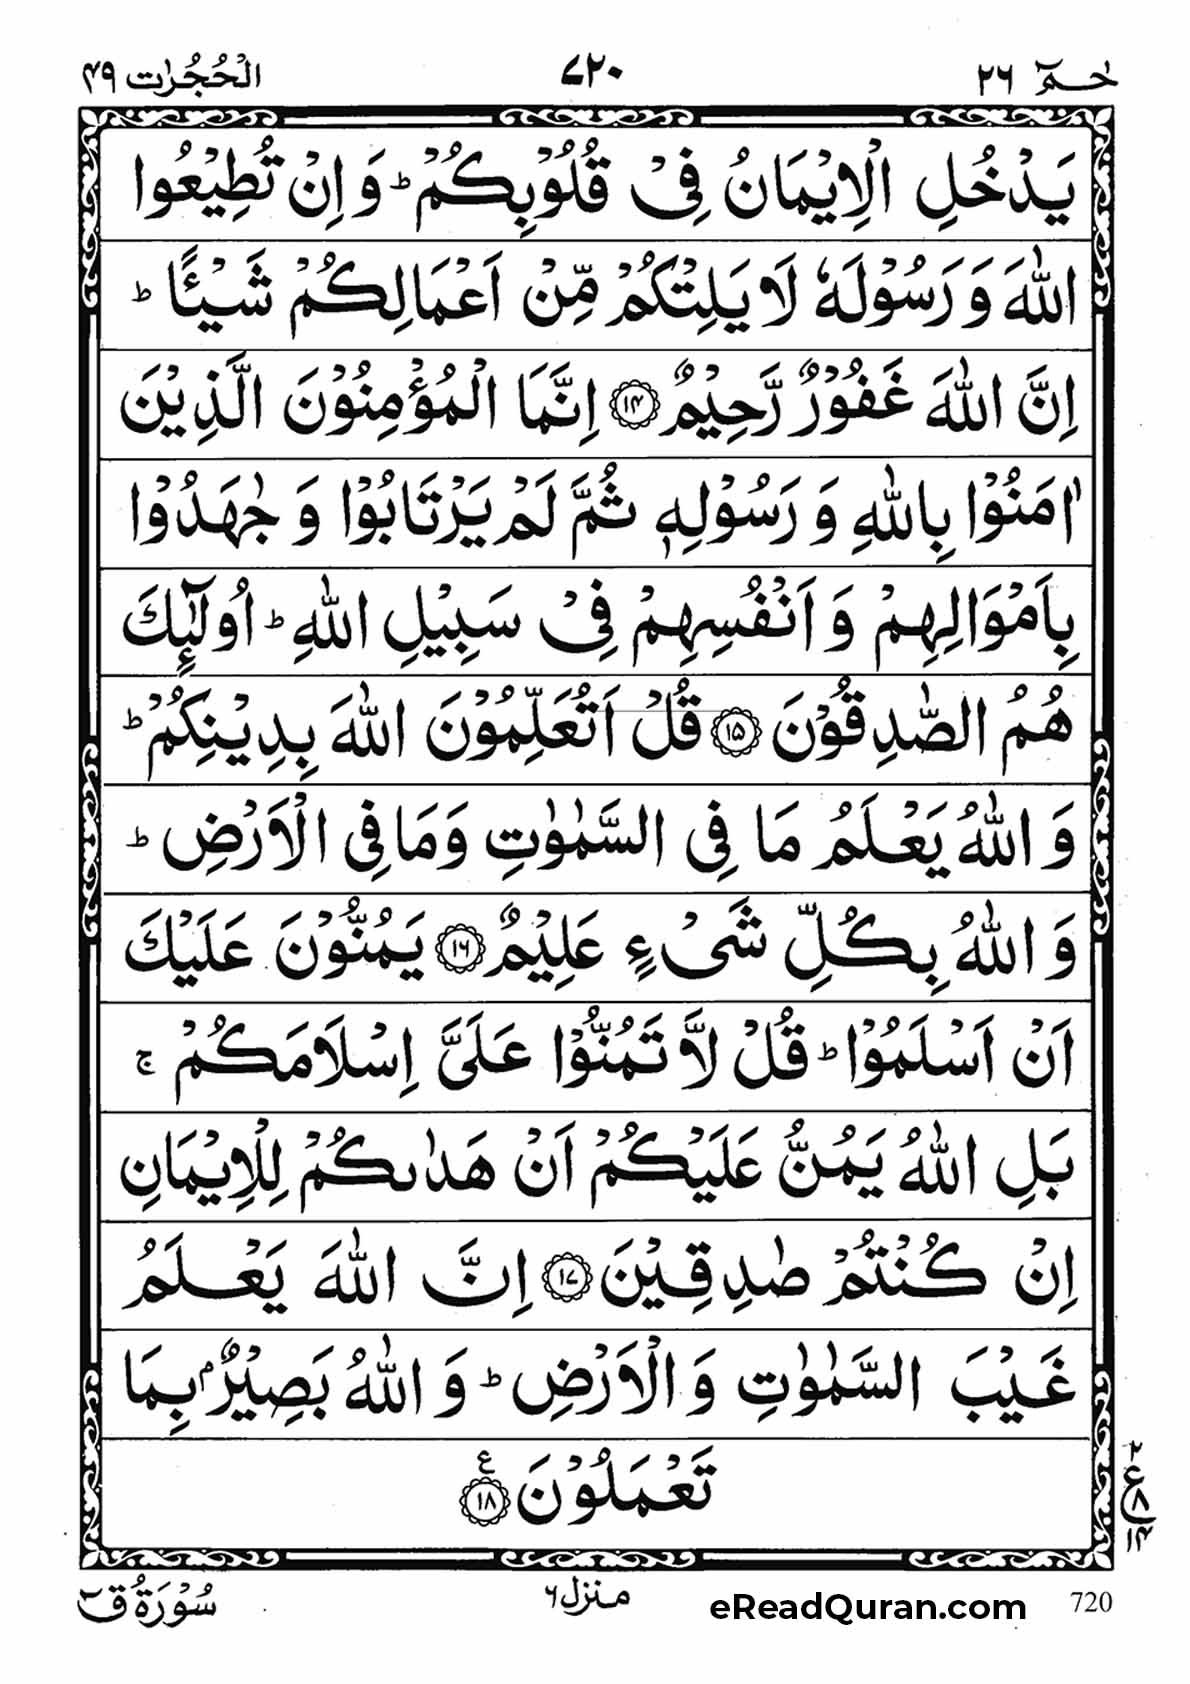 حٰمٓ ٢٦ ٧٢٠ الْحُجُرٰت ٤٩
يَدْخُلِ الْاِيْمَانُ فِيْ قُلُوْبِكُمْ ؕ وَ اِنْ تُطِيْعُوا
اللّٰهَ وَ رَسُوْلَهٗ لَا يَلِتْكُمْ مِّنْ اَعْمَالِكُمْ شَيْـًٔا ؕ
اِنَّ اللّٰهَ غَفُوْرٌ رَّحِيْمٌ ۝١٤ اِنَّمَا الْمُؤْمِنُوْنَ الَّذِيْنَ
اٰمَنُوْا بِاللّٰهِ وَ رَسُوْلِهٖ ثُمَّ لَمْ يَرْتَابُوْا وَ جٰهَدُوْا
بِاَمْوَالِهِمْ وَ اَنْفُسِهِمْ فِيْ سَبِيْلِ اللّٰهِ ؕ اُولٰٓئِكَ
هُمُ الصّٰدِقُوْنَ ۝١٥ قُلْ اَتُعَلِّمُوْنَ اللّٰهَ بِدِيْنِكُمْ ؕ
وَ اللّٰهُ يَعْلَمُ مَا فِي السَّمٰوٰتِ وَمَا فِي الْاَرْضِ ؕ
وَ اللّٰهُ بِكُلِّ شَيْءٍ عَلِيْمٌ ۝١٦ يَمُنُّوْنَ عَلَيْكَ
اَنْ اَسْلَمُوْا ؕ قُلْ لَّا تَمُنُّوْا عَلَيَّ اِسْلَامَكُمْ ۚ
بَلِ اللّٰهُ يَمُنُّ عَلَيْكُمْ اَنْ هَدٰىكُمْ لِلْاِيْمَانِ
اِنْ كُنْتُمْ صٰدِقِيْنَ ۝١٧ اِنَّ اللّٰهَ يَعْلَمُ
غَيْبَ السَّمٰوٰتِ وَ الْاَرْضِ ؕ وَ اللّٰهُ بَصِيْرٌۢ بِمَا
تَعْمَلُوْنَ ۝١٨ ع
٢ ع ٨ ١٤
سُوْرَةُ قٓ منزل ٦ eReadQuran.com 720